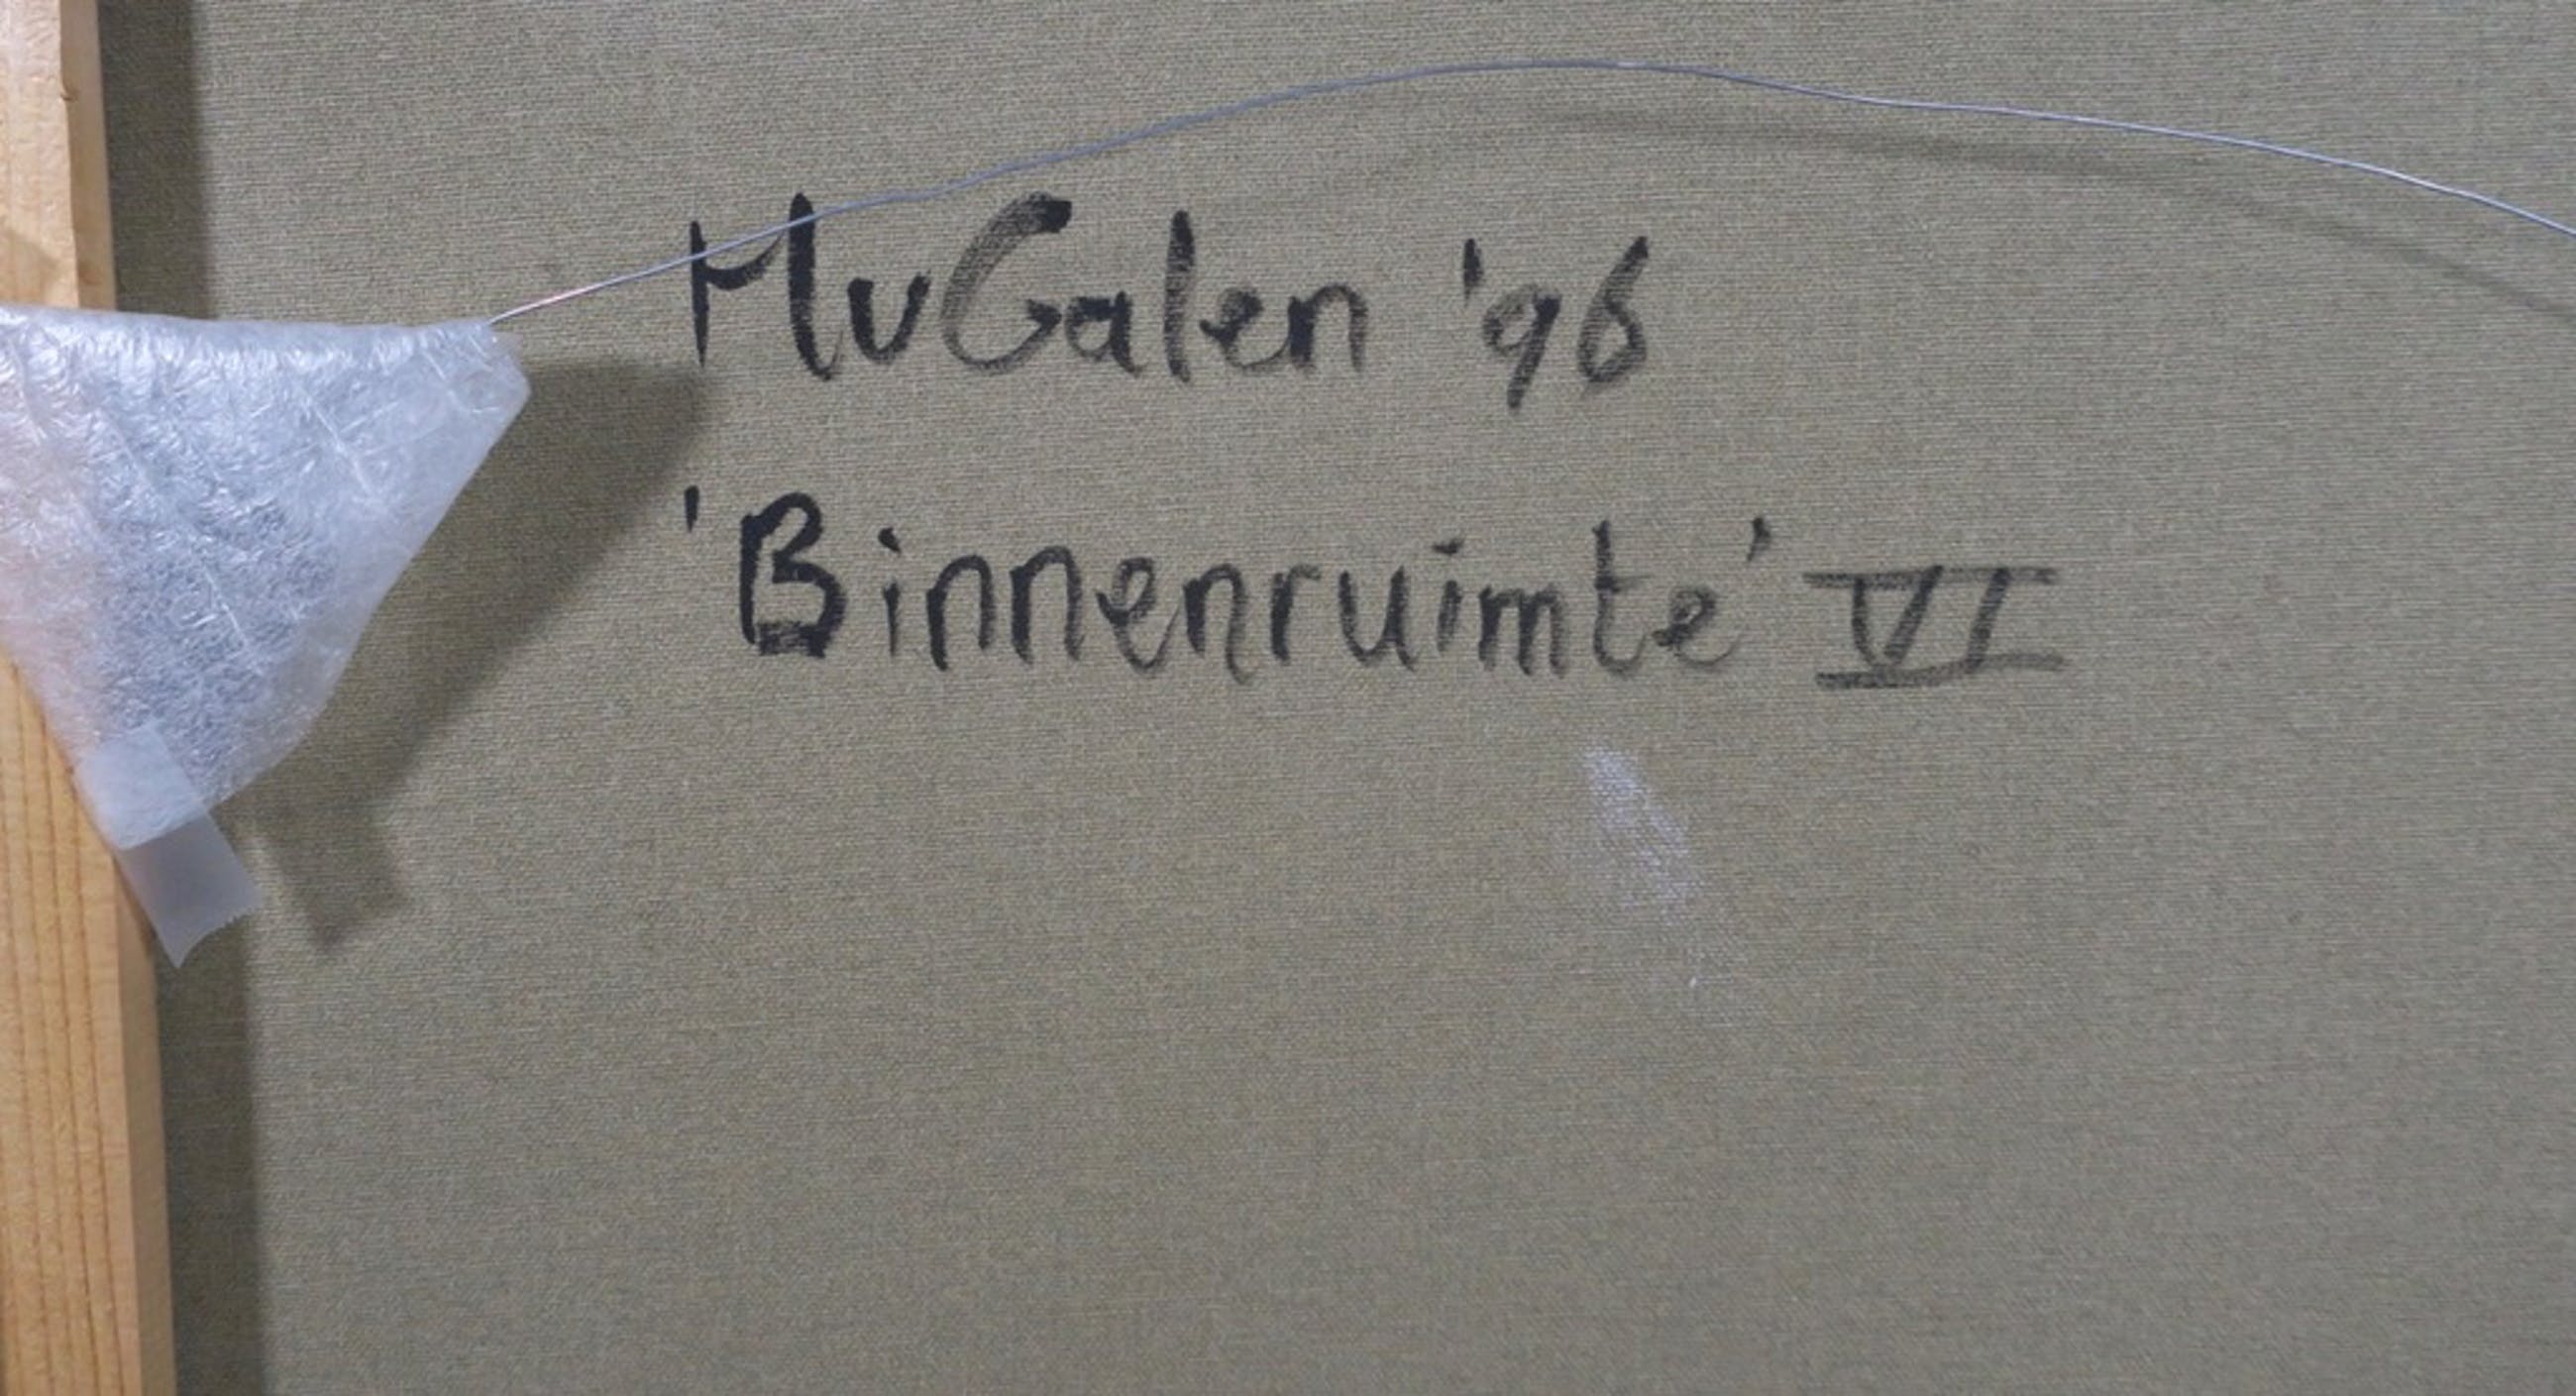 MvGalen '96
'Binnenruimte' VI